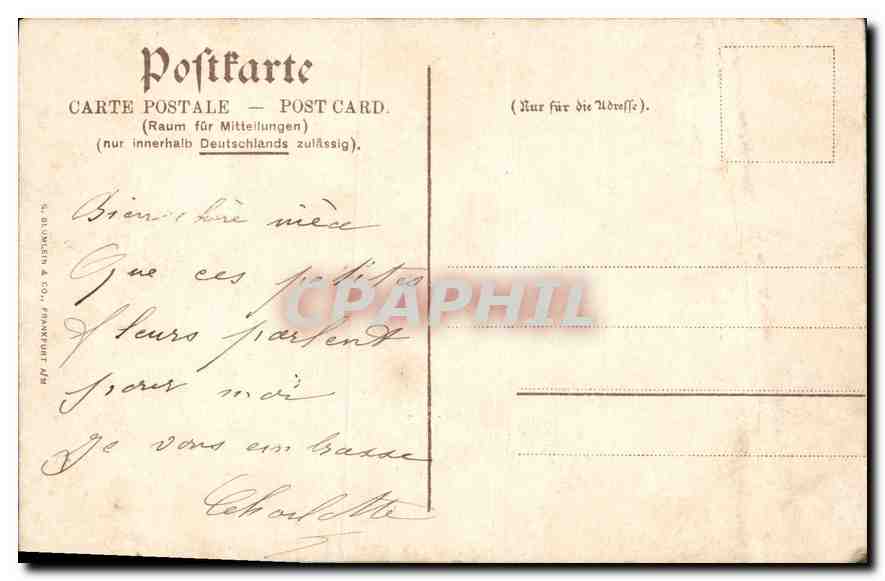 Postkarte
CARTE POSTALE — POST CARD.
(Raum für Mitteilungen)
(nur innerhalb Deutschlands zulässig).
(Nur für die Adresse).
G. BLÜMLEIN & CO., FRANKFURT A/M
Bien chère
Que ces petites
fleurs parlent
pour moi
Je vous embrasse
Charlotte
CPAPHIL